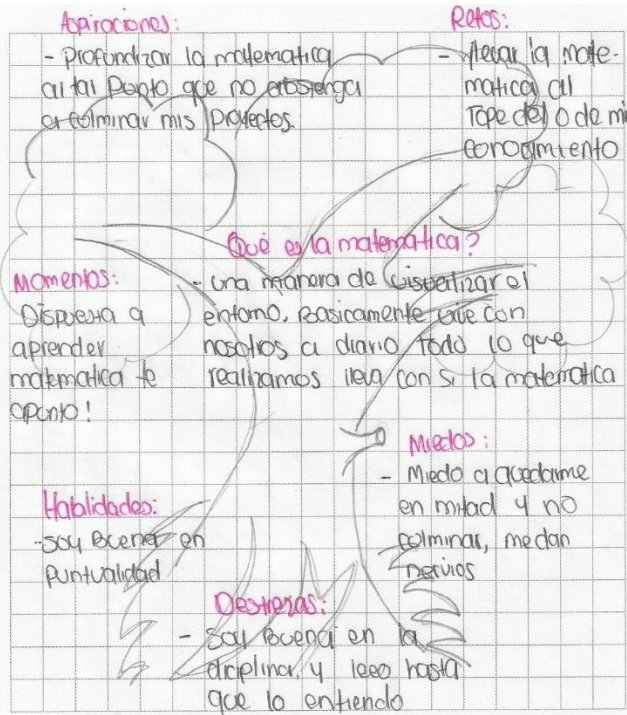 Aspiraciones:
- Profundizar la matematica
al tal Punto que no obstenga
a colminar mis Proyectos.
Retos:
- llevar la mate-
matica al
Tope del 0 de mi
conocimiento
Qué es la matematica?
- una manera de visualizar el
entorno, Basicamente vive con
nosotros a diario todo lo que
realizamos lleva con si la matematica
Momentos:
Dispuesta a
aprender
matematica te
apunto!
Miedos:
- Miedo a quedarme
en mitad y no
colminar, me dan
nervios
Habilidades:
- soy Buena en
Puntualidad
Destrezas:
- Soy Buena en la
diciplina, y leeo hasta
que lo entiendo